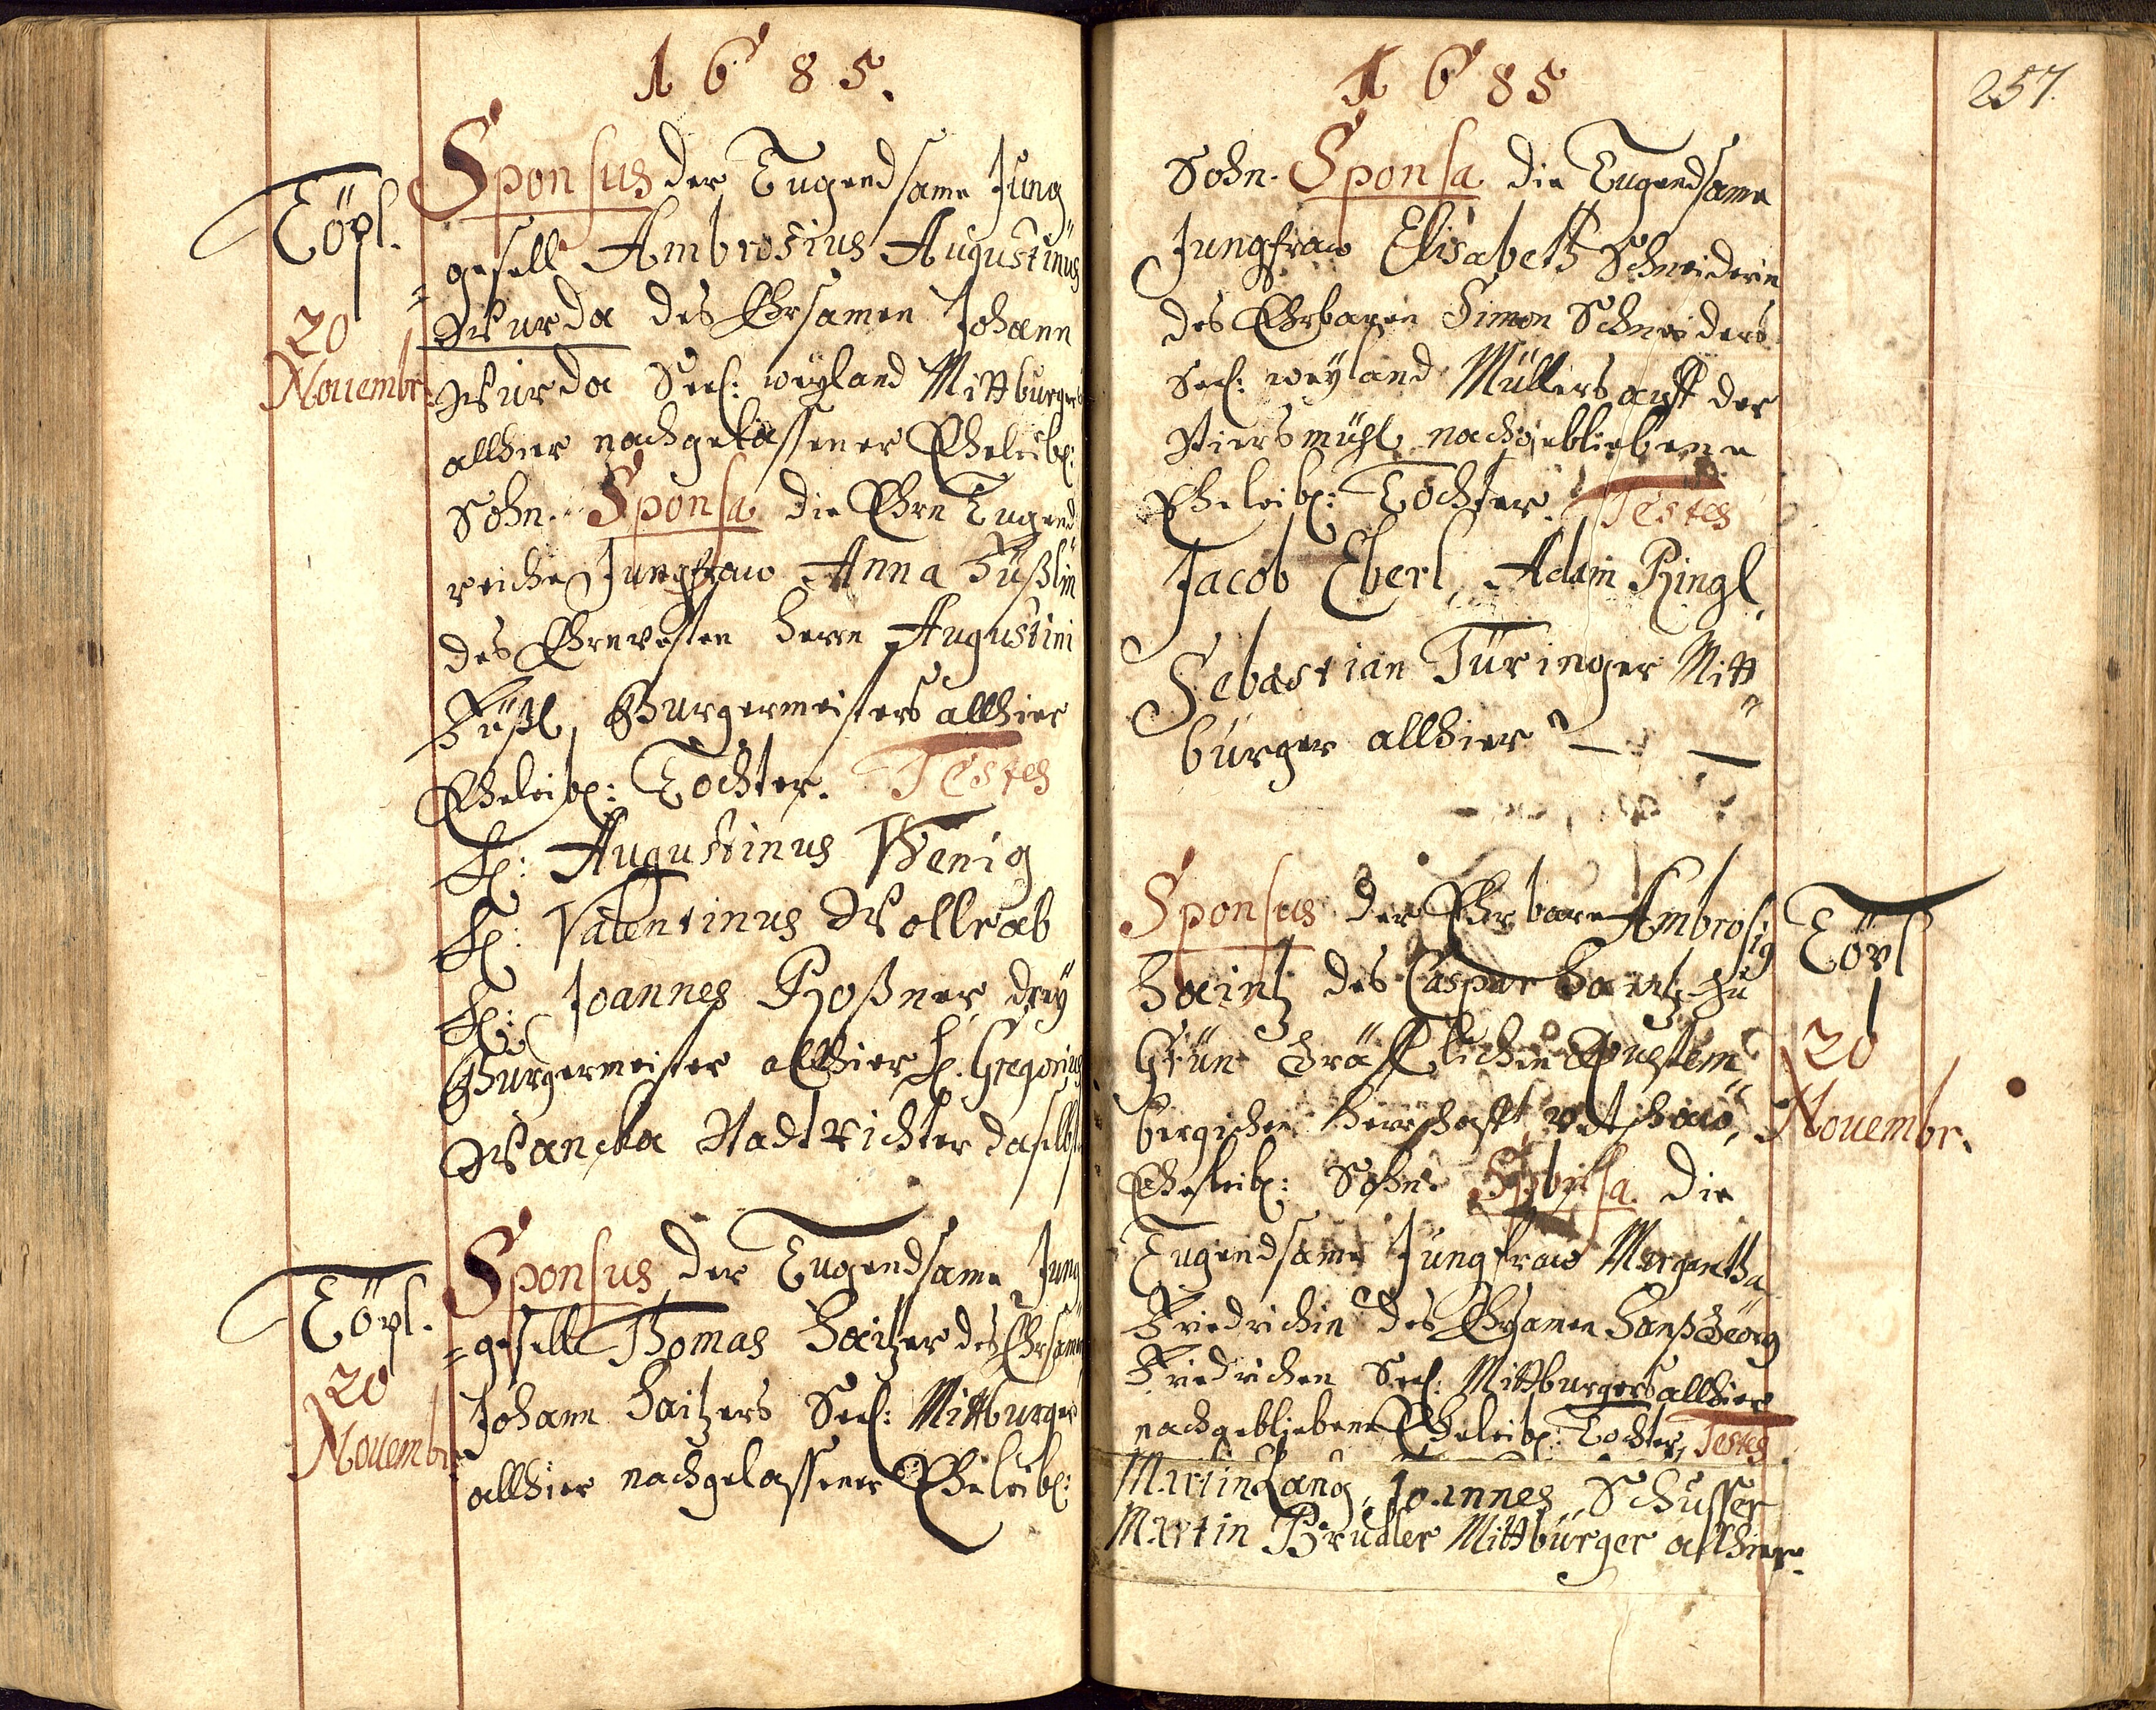 1685.
Töpl.
20
Nouembr.
Sponsus der Tugendsame Jung
gesell Ambrosius Augustinus
Wurda des Ehrsamen Johann
Wurda Seel: weyland Mittburgers
allhier nachgelassener Eheleibl:
Sohn. Sponsa die Ehrn Tugend
reiche Jungfraw Anna Füßlin
des Ehrnvesten Herrn Augustini
Füßl, Burgermeisters allhier
Eheleibl: Tochter. Testes
H: Augustinus Wenig
H: Valentinus Wollrab
H: Joannes Roßner, drey
Burgermeister allhier H. Gregorius
Wancka Stadtrichter daselbst
Töpl.
20
Nouembr.
Sponsus der Tugendsame Jung
=gesell Thomas Haitzer des Ehrsamen
Johann Haitzers Seel: Mittburger
allhier nachgelassener Eheleibl:
1685
257.
Sohn. Sponsa die Tugendsame
Jungfraw Elisabeth Schneiderin
des Ehrbaren Simon Schneiders
Seel: weyland Müllers auff der
nachgebliebene
Eheleibl: Tochter. Testes
Jacob Eberl, Adam Ringl,
Sebastian Türinger Mitt
burger allhier
Töpl
20
Nouembr.
Sponsus der Ehrbare Ambrosig
Haintz des Caspar Haintz zu
Grün Gräfflichen
bergischen Herrschafft
Eheleibl: Sohn. Sponsa die
Tugendsame Jungfraw Margaretha
Friedrichin des Ehrsamen Hanß Geörg
Friedrichen Seel: Mittburgers allhier
nachgebliebene Eheleibl: Tochter, Testes
Martin Lang, Joannes Schusser
Martin Brudler Mittburger allhier.